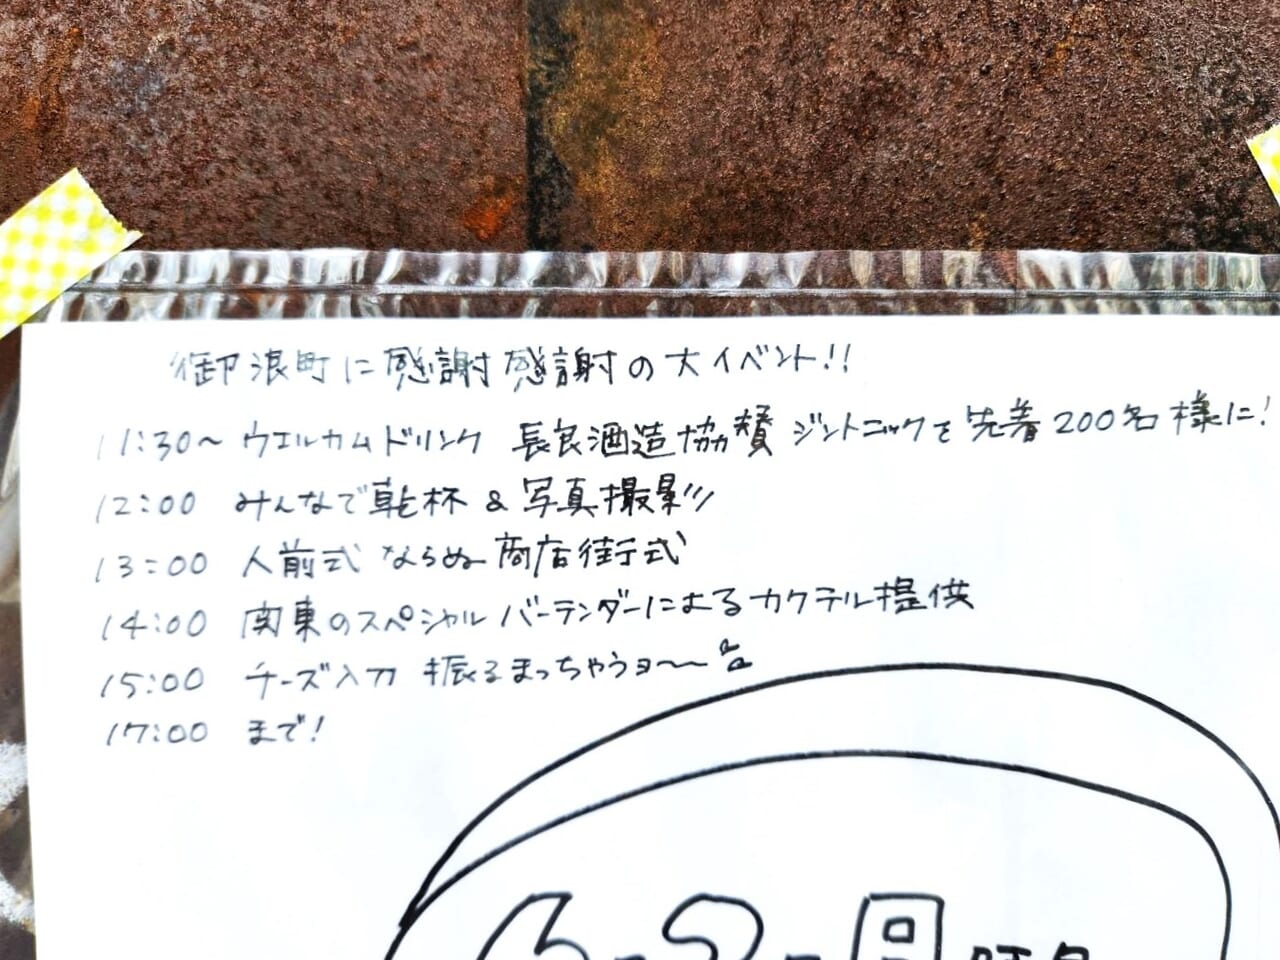 御浪町に感謝感謝の大イベント!!
11:30〜 ウエルカムドリンク 長良酒造協賛 ジントニックを先着200名様に!
12:00 みんなで乾杯 & 写真撮影!!
13:00 人前式 ならぬ 商店街式
14:00 関東のスペシャル バーテンダーによるカクテル提供
15:00 チーズ入刀 振るまっちゃうヨ〜〜
17:00 まで!